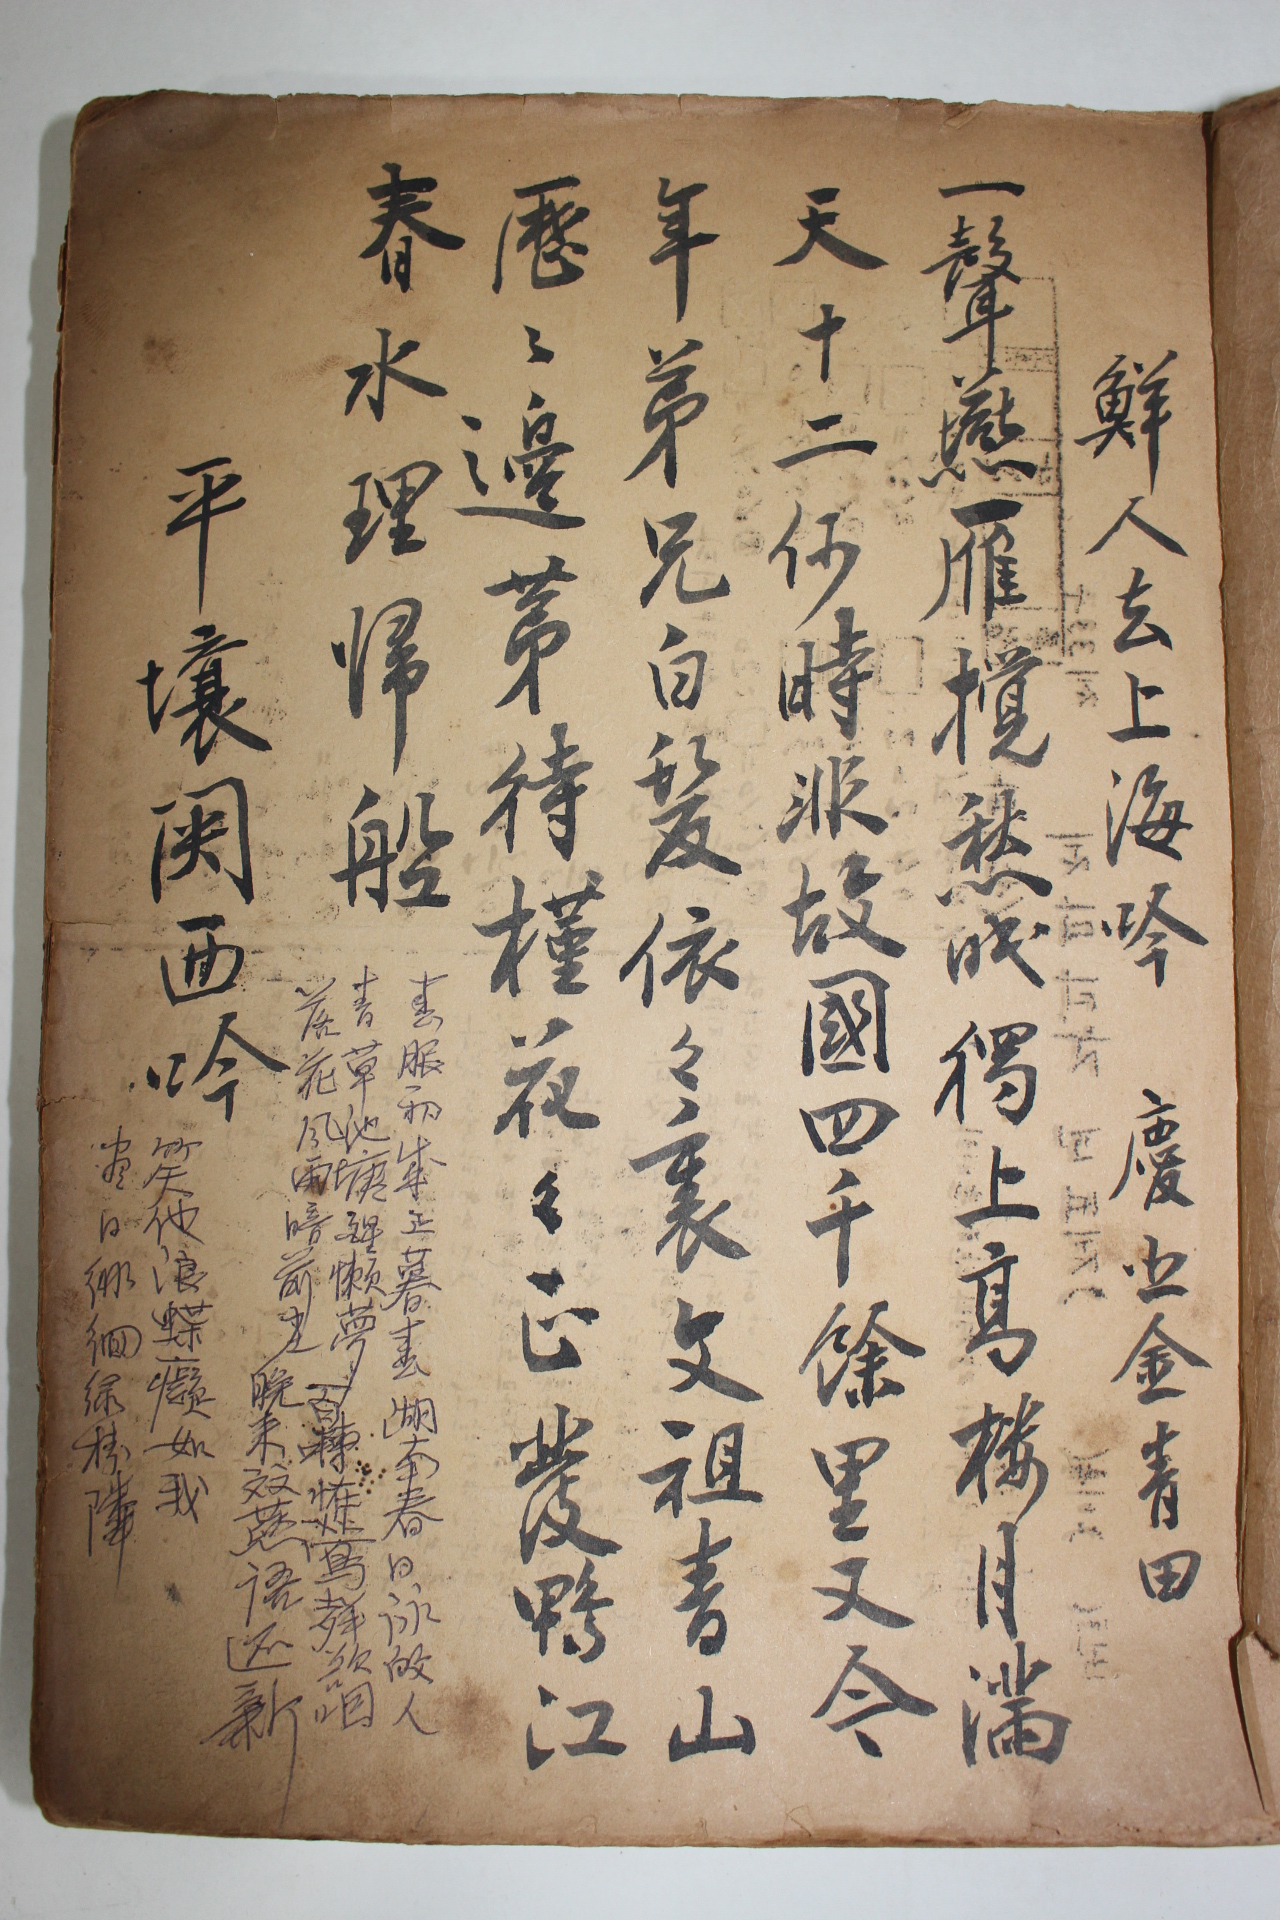 鮮人去上海吟 慶尙金青田
一聲燕雁攪愁眠獨上高樓月滿
天十二何時非故國四千餘里又今
年弟兄白髮依々裏文祖青山
歷々邊第待槿花々正發鴨江
春水理歸船
春服初成正暮春湖南春日詠故人
青草池塘醒懶夢 鶯聲欲咽
落花風雨暗前 晚來双燕語還新
平壤関西吟
笑他浪蝶癡如我
盡日徘徊綠樹隣